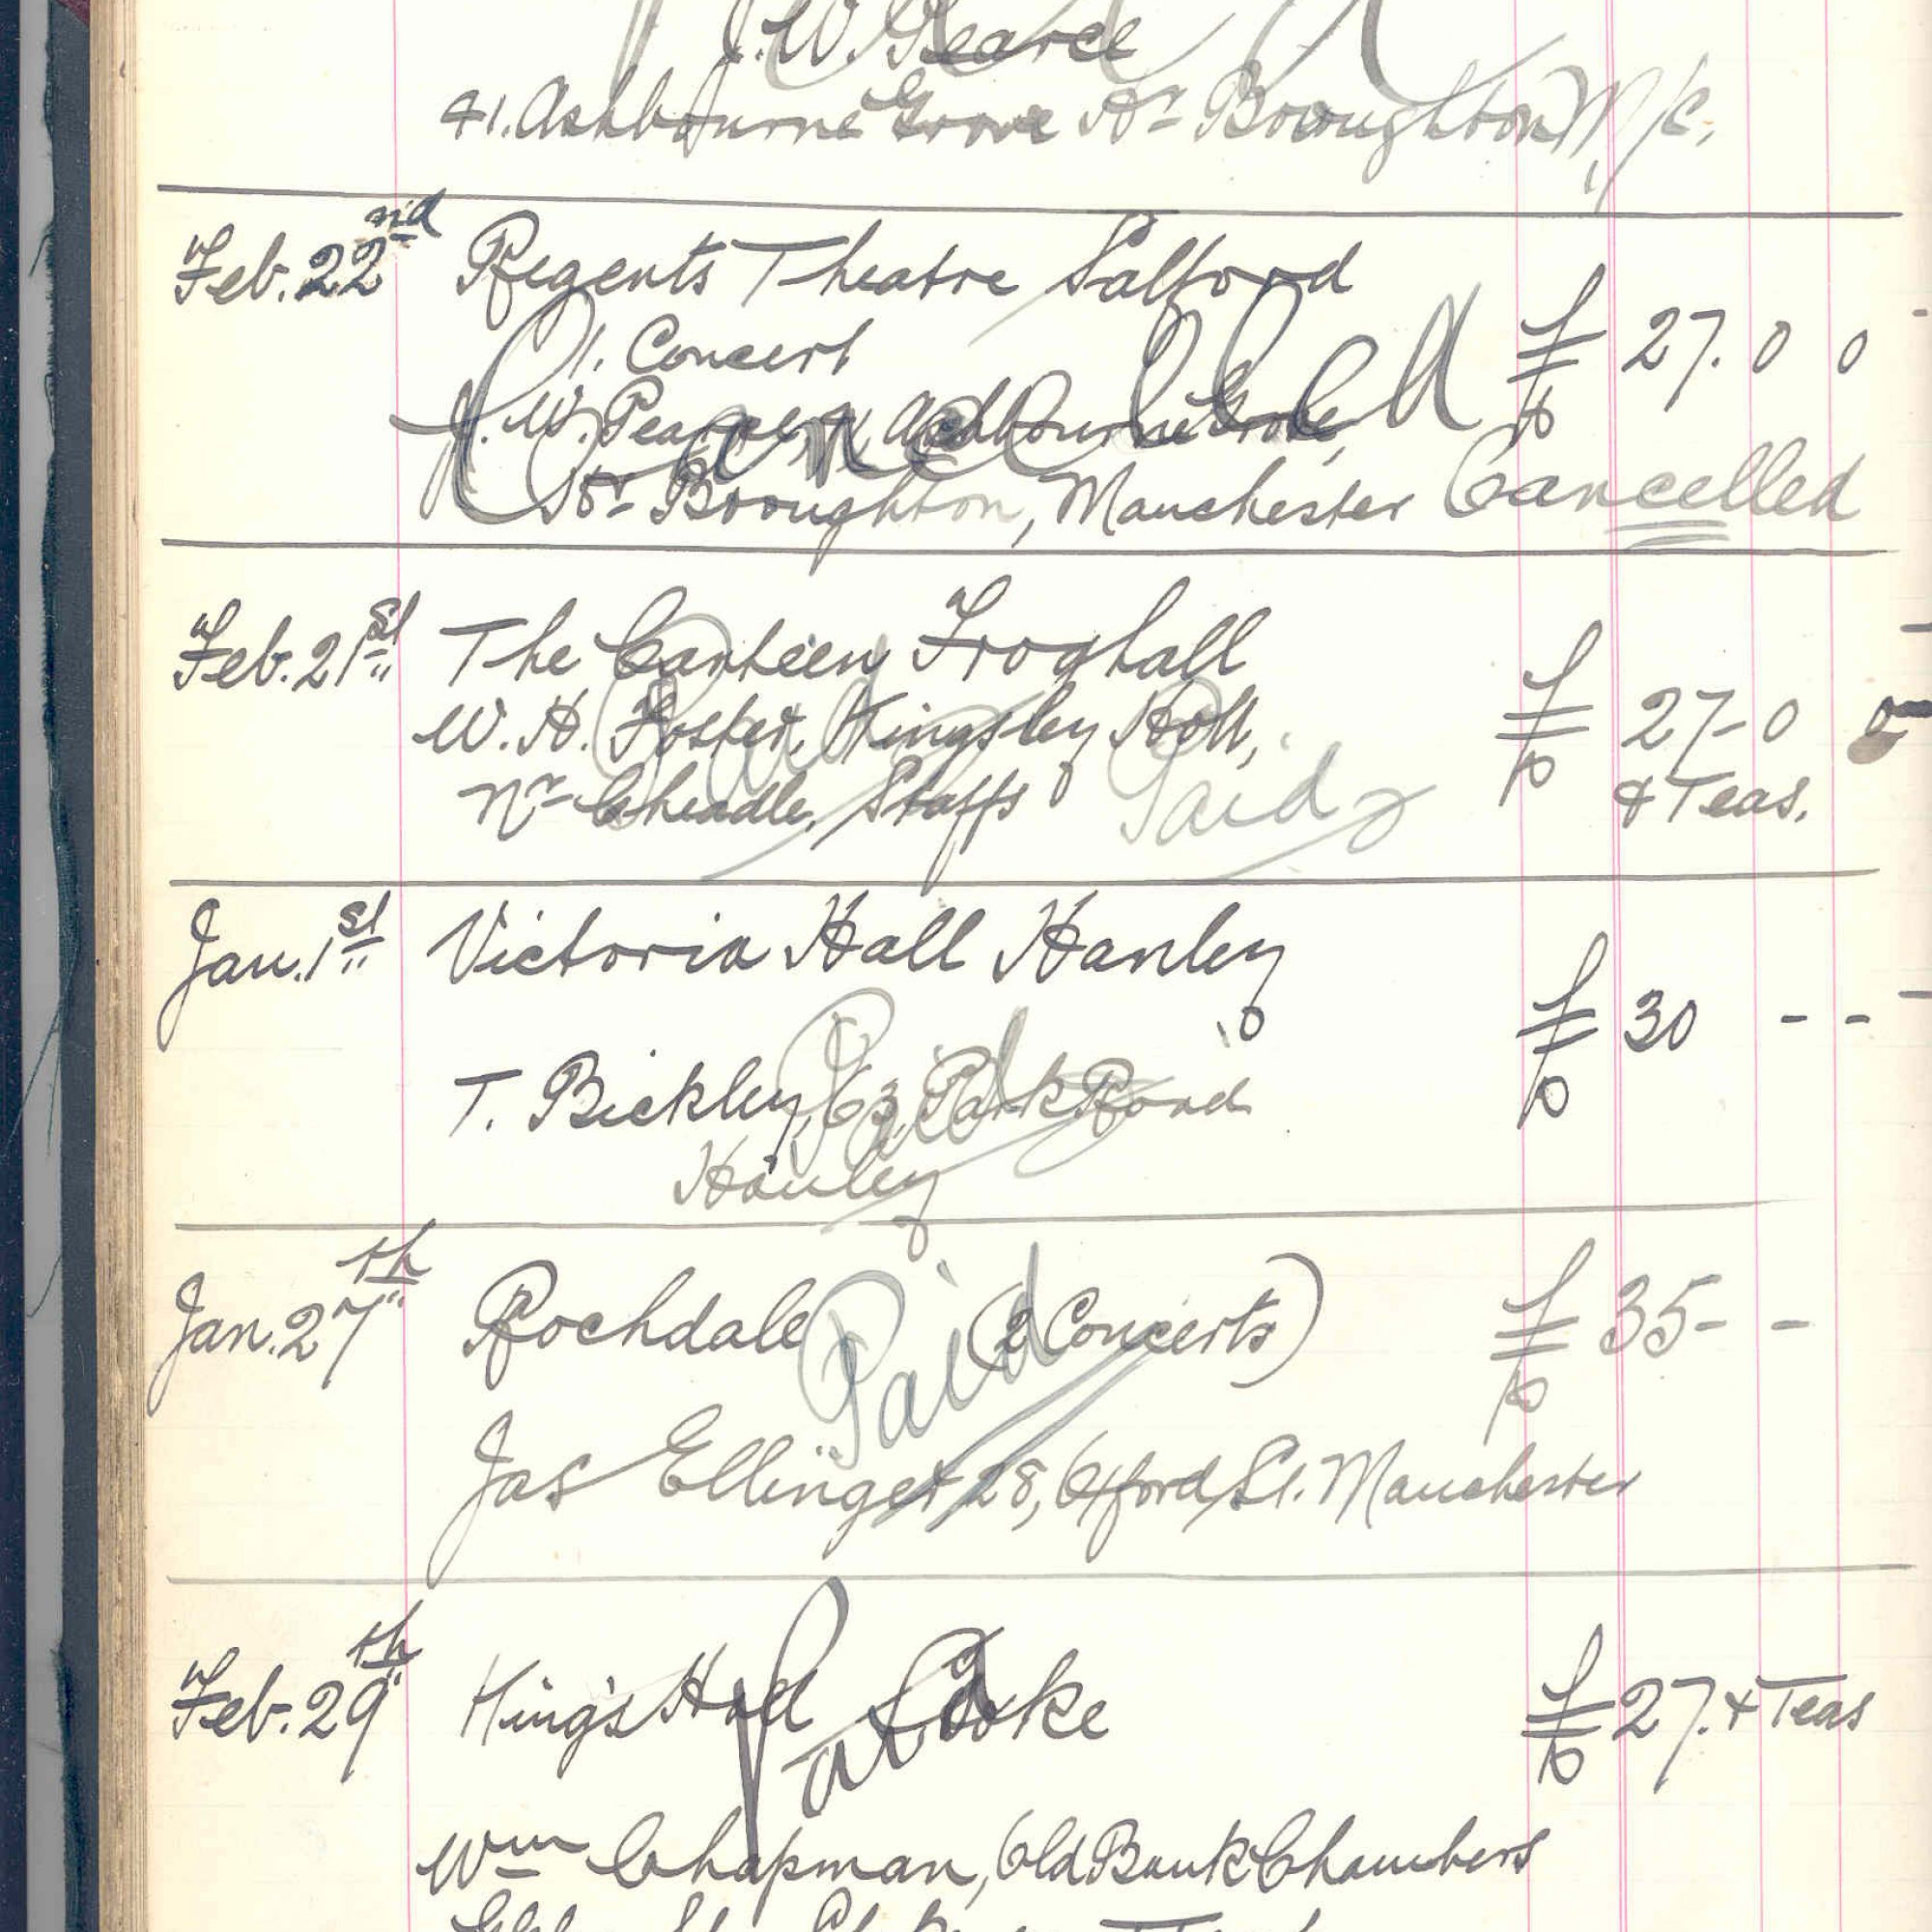 J. W. Pearce
41. Ashbourne Grove Hr Broughton M/c.
Feb. 22nd Regents Theatre Salford
1. Concert £ 27. 0 0
J. W. Pearce 41 Ashbourne Grove,
Hr Broughton, Manchester Cancelled
Cancelled
Feb. 21st The Canteen Froghall
W. H. Foster, Kingsley Holt, £ 27-0 0
Nr Cheadle, Staffs & Teas.
Paid Paid
Jan. 1st Victoria Hall Hanley
£ 30 - -
T. Bickley, 63, Park Road
Hanley
Paid Paid
Jan. 27th Rochdale (2 Concerts) £ 35 - -
Paid
Jas Ellinger 28, Oxford St. Manchester
Feb. 29th King's Hall Stoke £ 27. & Teas
Paid
Wm Chapman, Old Bank Chambers